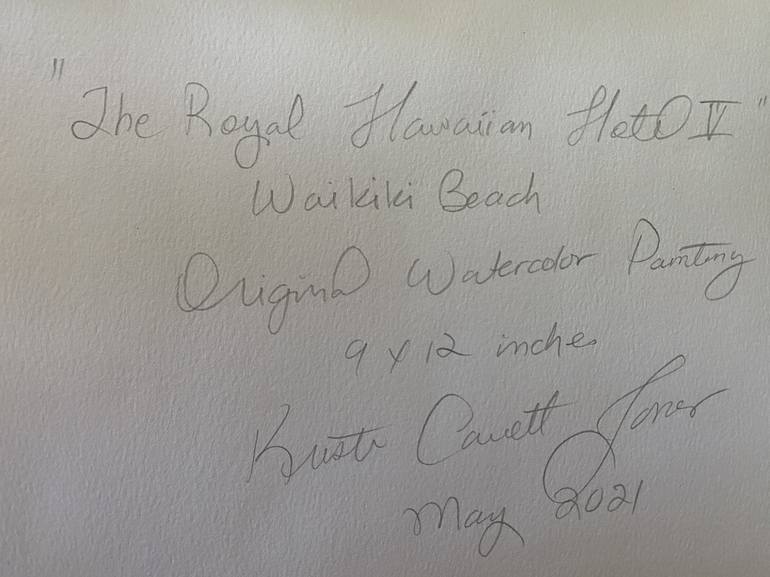 "The Royal Hawaiian Hotel V"
Waikiki Beach
Original Watercolor Painting
9 x 12 inches
Jones
May 2021